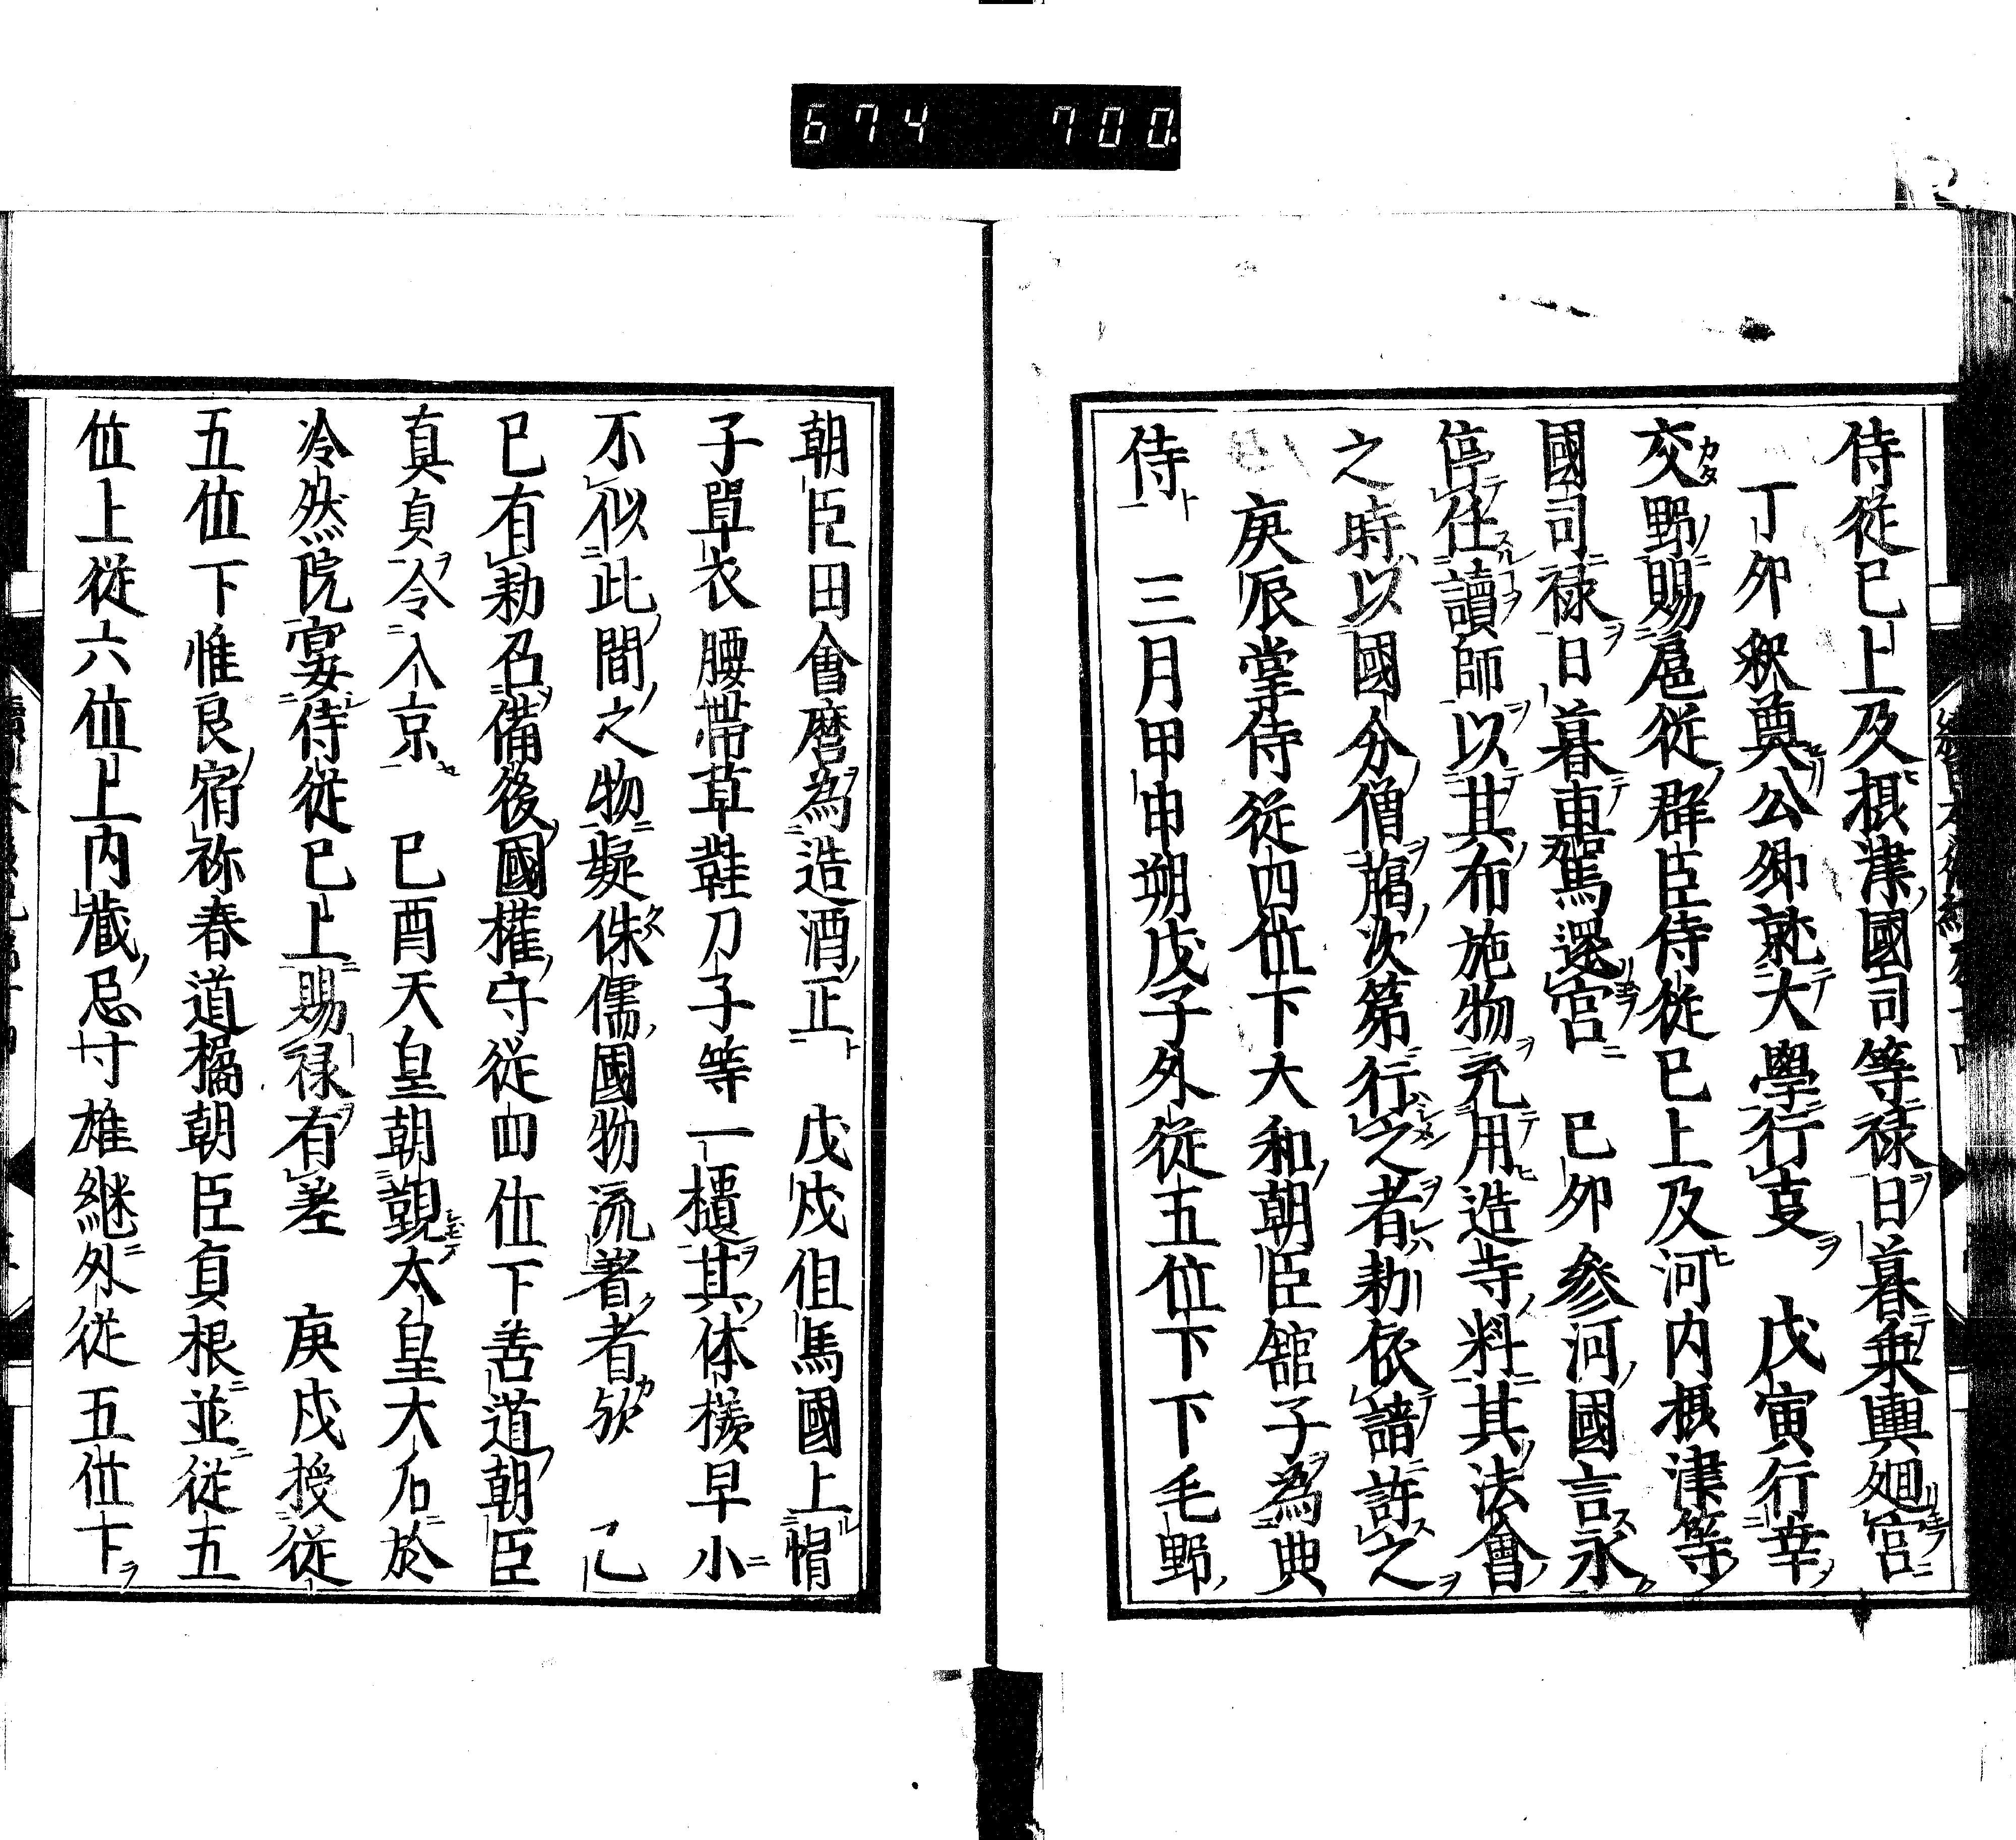 674 700
侍從已上及摂津國司等禄日暮乗輿廻宮
丁夘釈奠公卿就大學行支 戊寅行幸
交野賜扈從群臣侍從已上及河内摂津等
國司禄日暮車駕還宮 已夘参河國言永
停任讀師以其布施物充用造寺料其法會
之時以國分僧﨟次第行之者勅依請許之
庚辰掌侍從四位下大和朝臣舘子為典
侍 三月甲申朔戊子外從五位下下毛野
朝臣田會麿為造酒正 戊戌伹馬國上帽
子單衣腰帯草鞋刀子等一櫃其体様早小
不似此間之物疑侏儒國物流著者欤 乙
巳有勅召備後國権守從四位下善道朝臣
真貞令入京 已酉天皇朝覲太皇大后於
冷然院宴侍從已上賜禄有差 庚戌授從
五位下惟良宿祢春道橘朝臣貞根並從五
位上從六位上内蔵忌寸雄継外從五位下